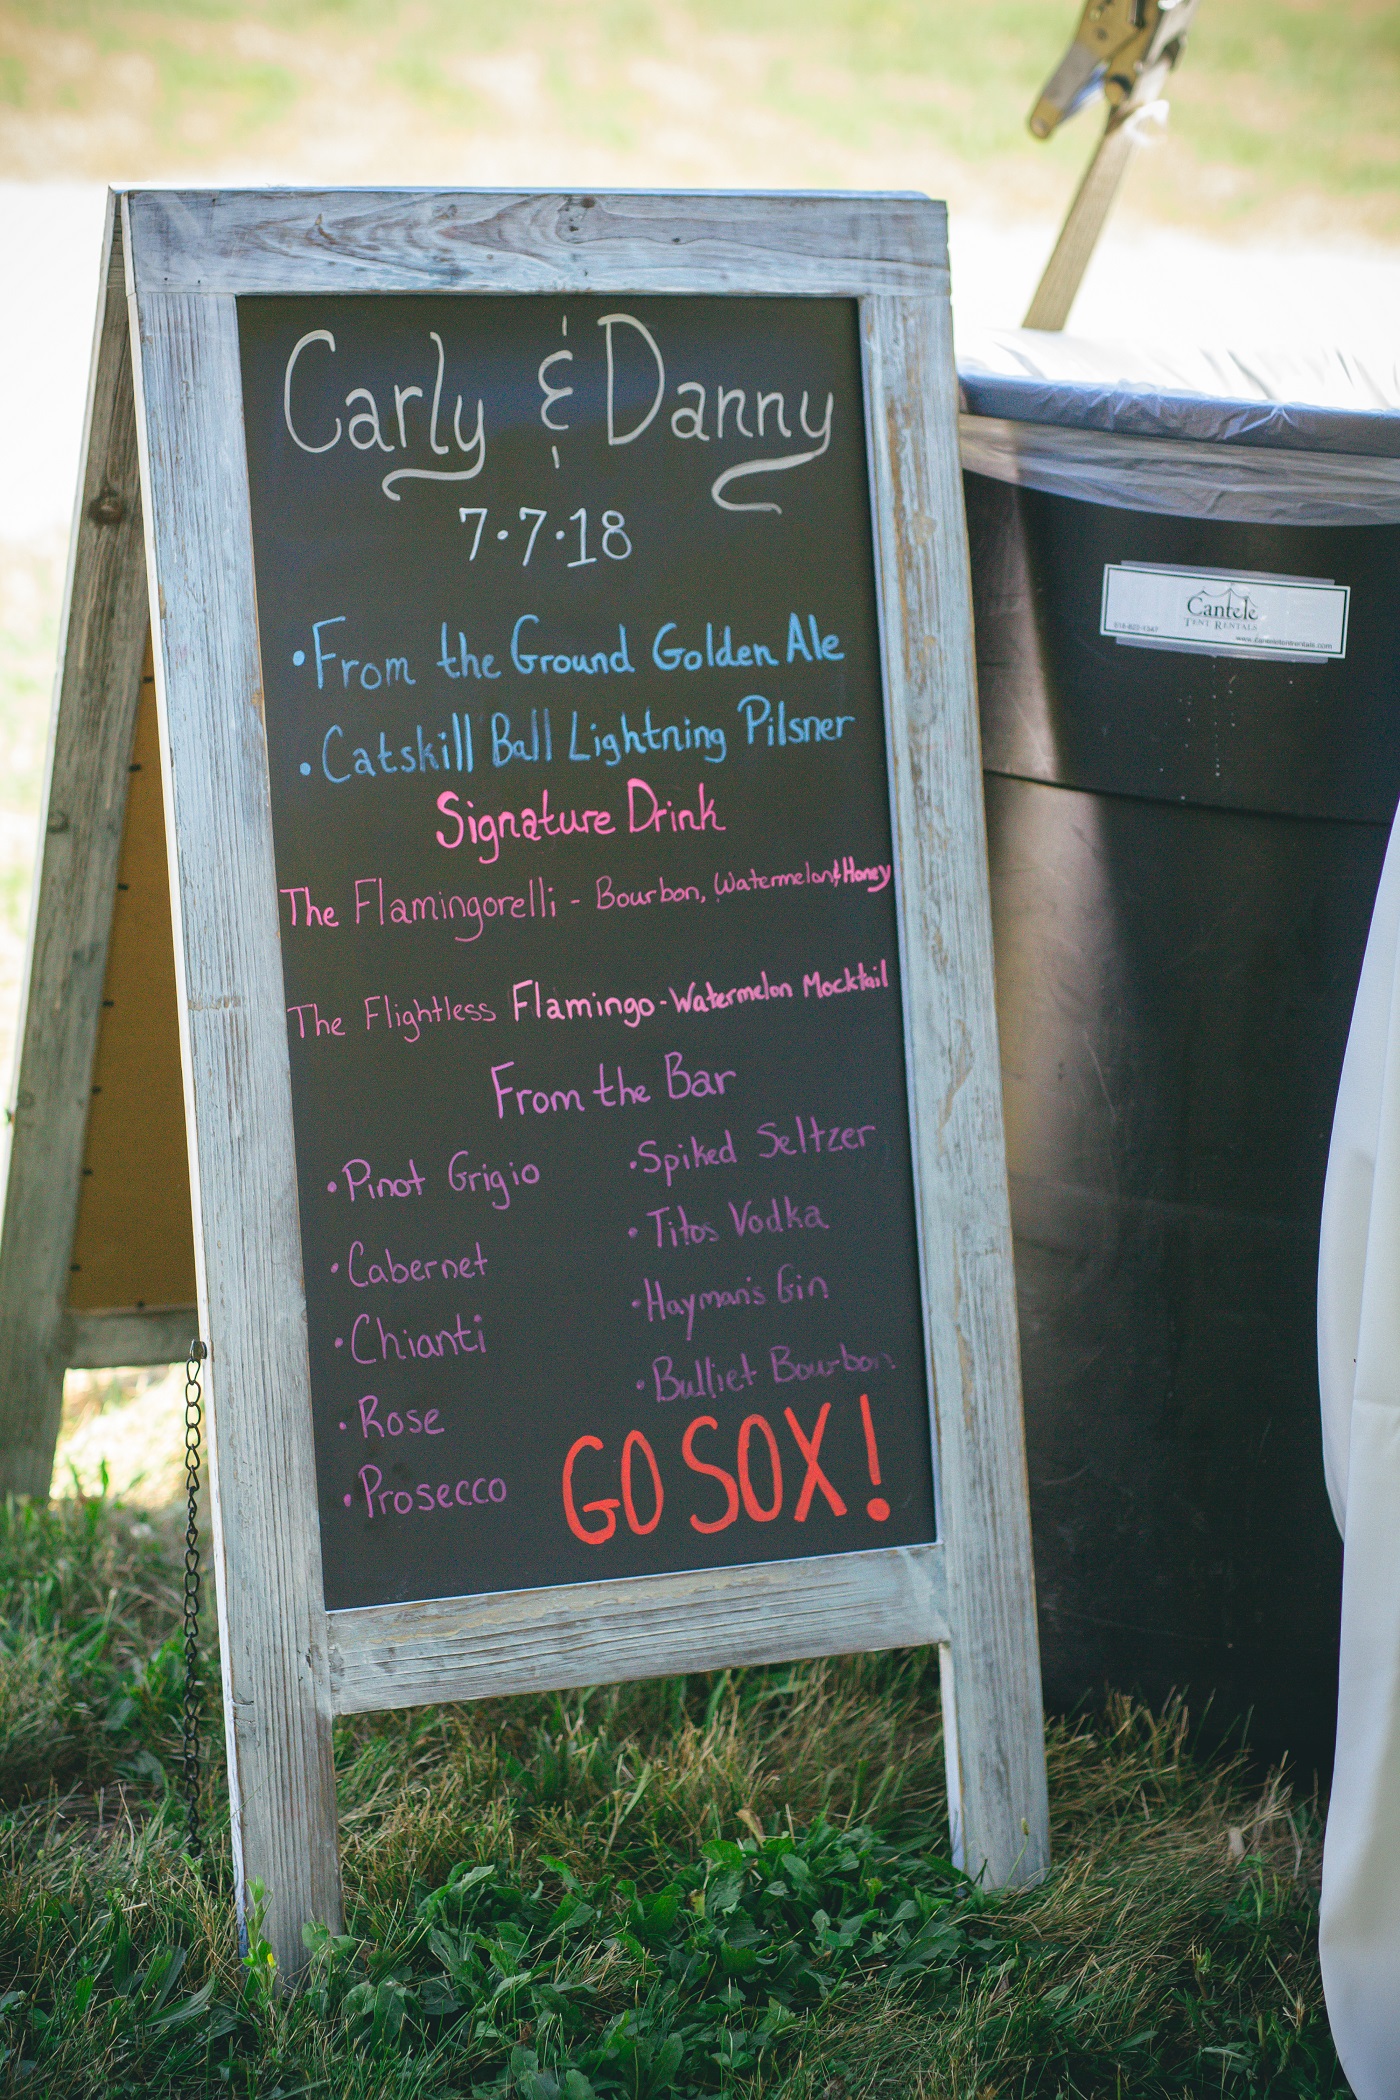 Carly & Danny
7·7·18
• From the Ground Golden Ale
• Catskill Ball Lightning Pilsner
Signature Drink
The Flamingorelli - Bourbon, Watermelon & Honey
The Flightless Flamingo - Watermelon Mocktail
From the Bar
• Pinot Grigio
• Cabernet
• Chianti
• Rose
• Prosecco
• Spiked Seltzer
• Titos Vodka
• Hayman's Gin
• Bulliet Bourbon
GO SOX!
Cantele
TENT RENTALS
www.canteletentrentals.com